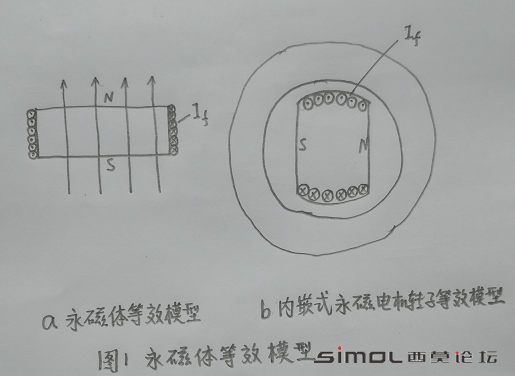 I_f
N
I_f
S
S
N
a 永磁体等效模型
b 内嵌式永磁电机转子等效模型
图1 永磁体等效模型
simol 西莫论坛